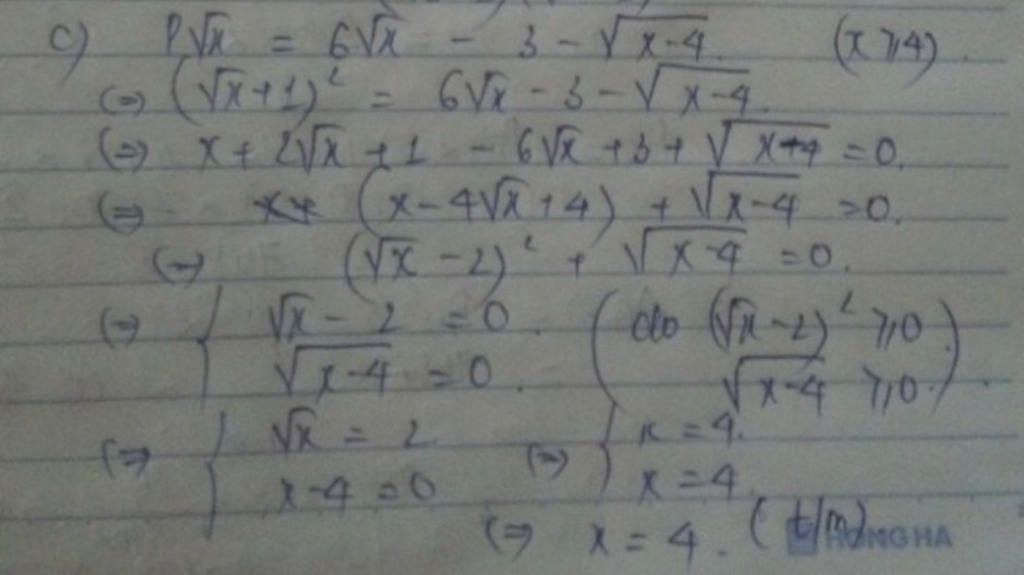 c) P√x = 6√x - 3 - √(x-4) (x ⩾ 4).
(=) (√x+1)² = 6√x - 3 - √(x-4).
(=) x + 2√x + 1 - 6√x + 3 + √(x-4) = 0.
(=) (x - 4√x + 4) + √(x-4) = 0.
(=) (√x - 2)² + √(x-4) = 0.
(=) { √x - 2 = 0. (do (√x-2)² ⩾ 0
√(x-4) = 0. √(x-4) ⩾ 0.).
(=) { √x = 2 (=) { x = 4.
x-4 = 0 x = 4
(=) x = 4. (t/m)
HONG HA